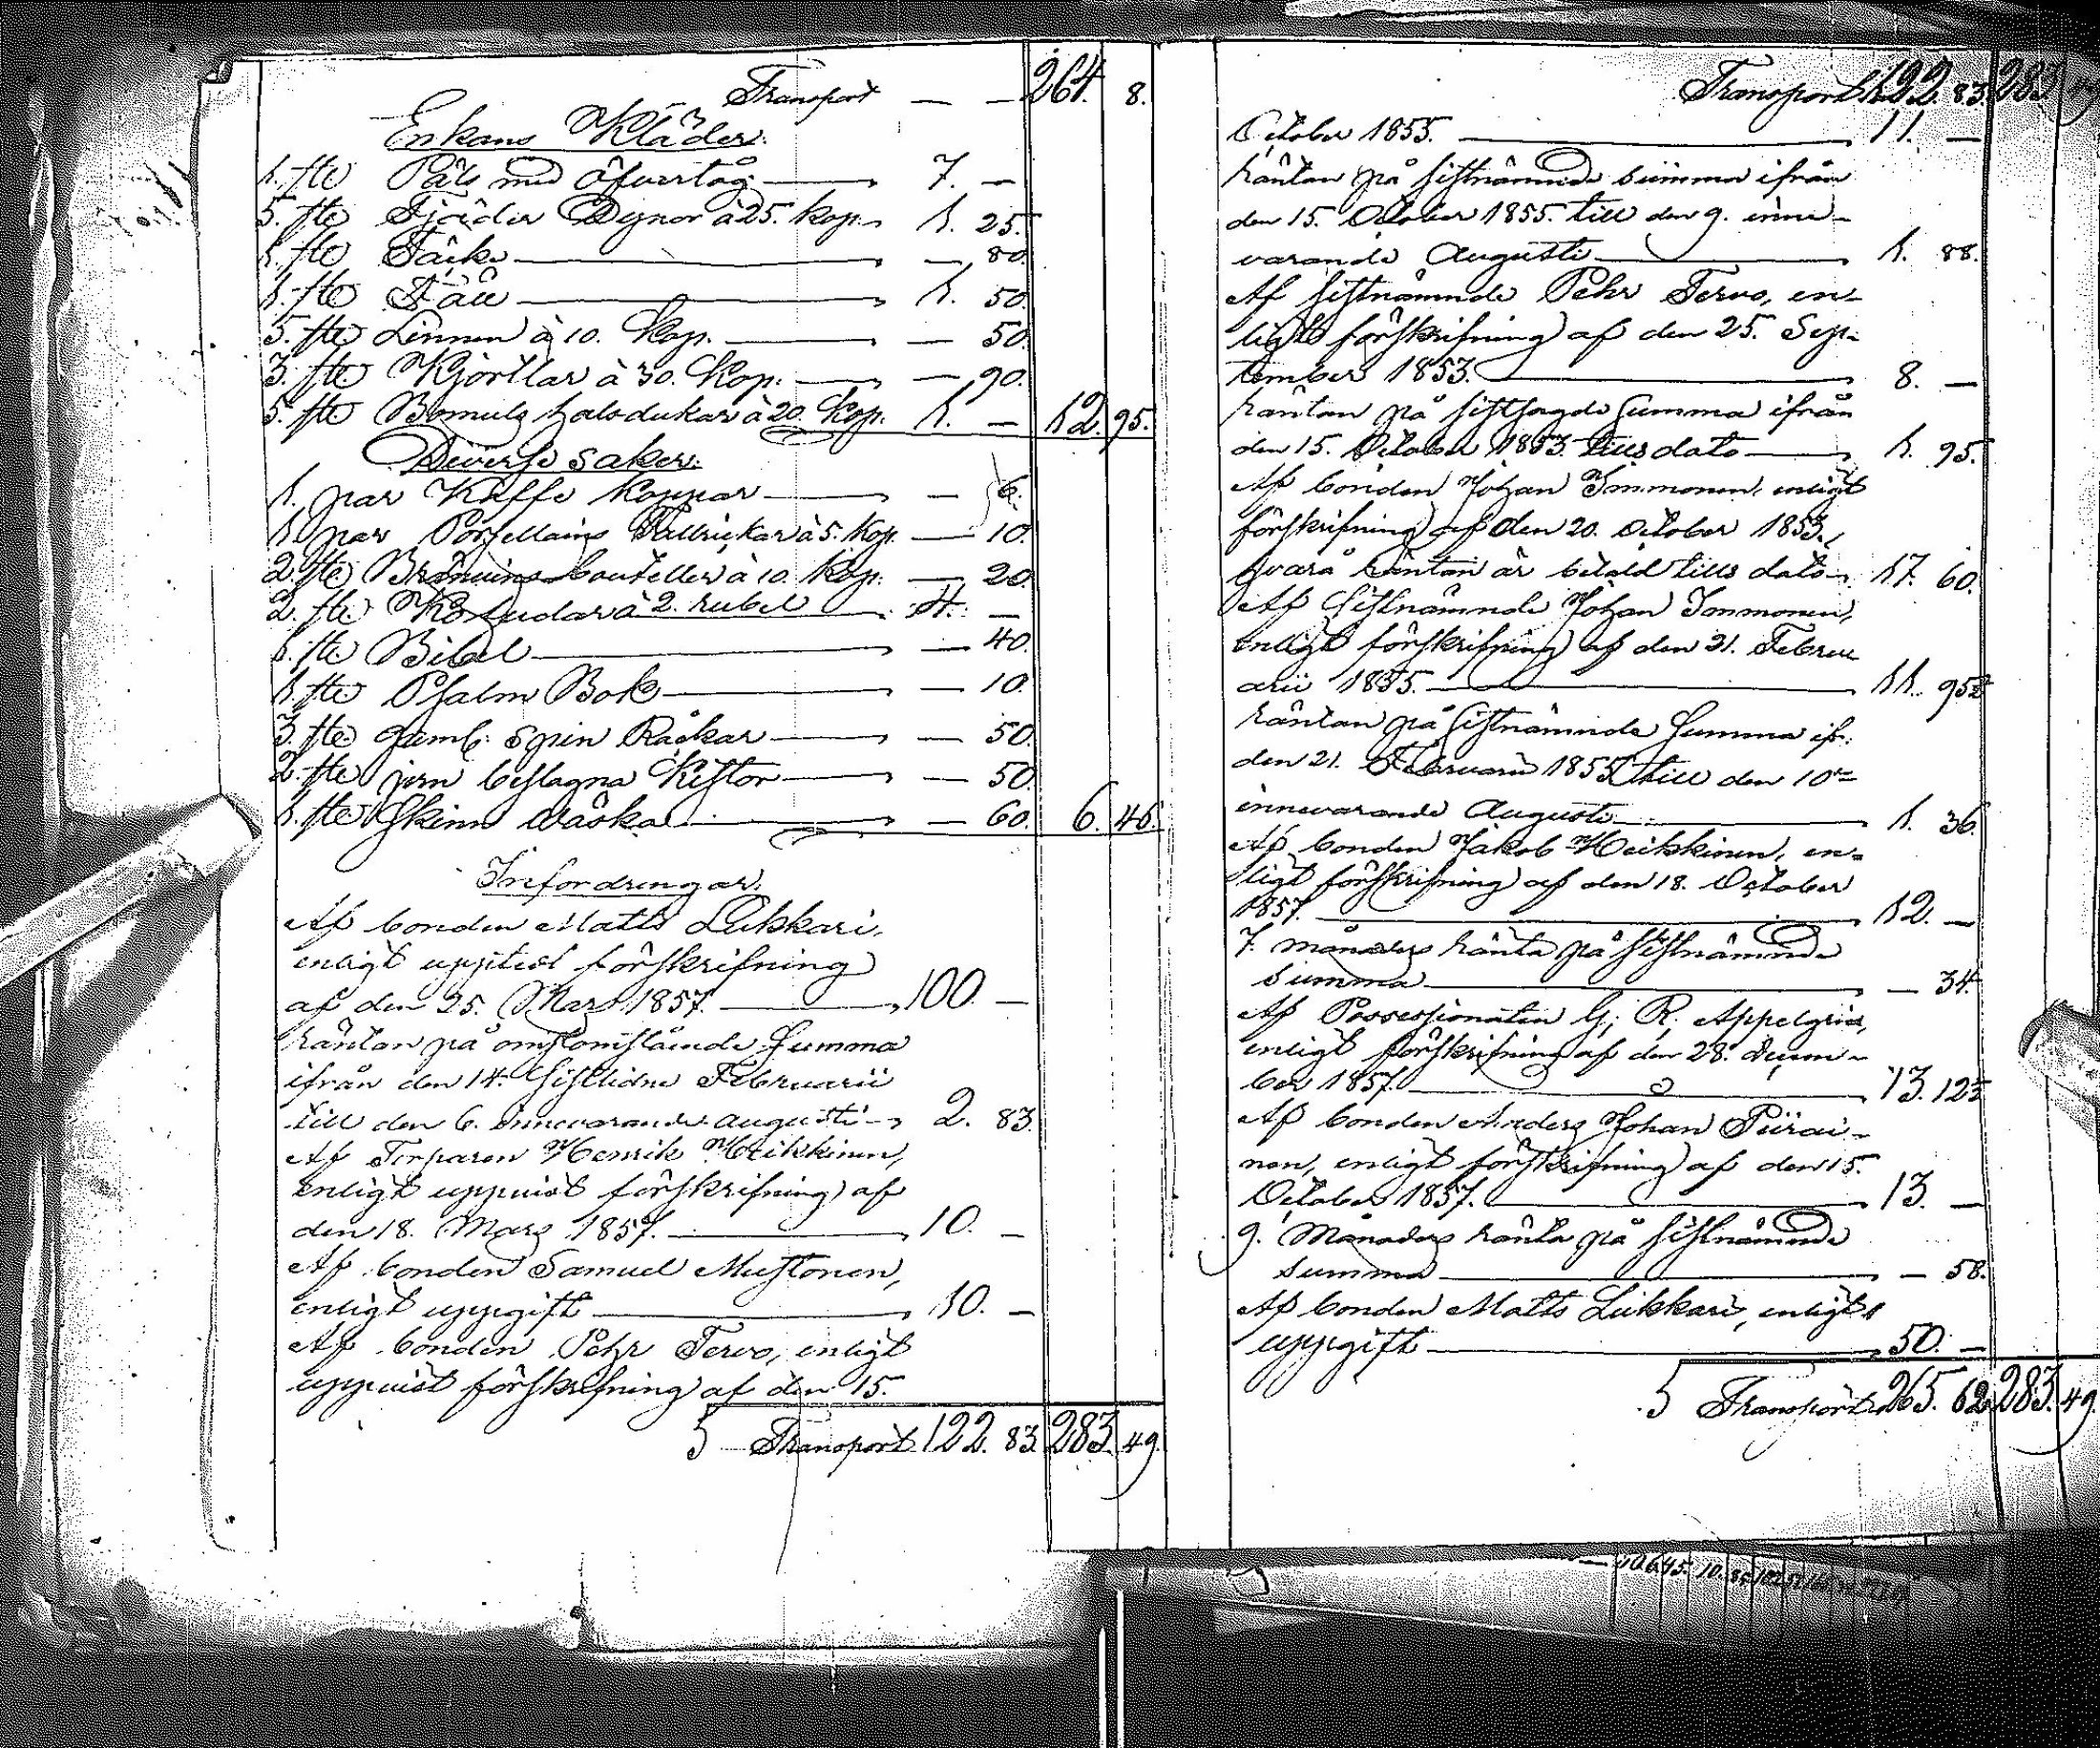 Transport — — 264. 8.
Enkans Kläder.
1. ste Päls med öfvertåg — 7. —
5. ste Fjäder Dynor à 25. kop. 1. 25.
1. ste Täcke — — 80.
1. ste — 1. 50.
5. ste Linnen à 10. kop. — — 50.
3. ste Kjortlar à 30. kop. — — 90.
5. ste Bomuls halsdukar à 20. kop. 1. — 12. 95.
Diverse saker.
1. par Kaffe koppar — — 6.
1. par Porsellains Tallrickar à 5. kop. — 10.
2. ste Bränvins bouteller à 10. kop. — 20.
2. ste à 2. rubel — 4. —
1. ste Bibel — — 40.
1. ste Psalm Bok — — 10.
3. ste gaml. spin Råckar — — 50.
2. ste jern beslagna Kistor — — 50.
1. ste Skinn Wäska — — 60. 6. 46.
Infordringar.
Af bonden Matts Lukkari,
enligt uppvist förskrifning
af den 25. Mars 1857. — 100. —
räntan på omförmälda Summa
ifrån den 14. sistledne Februarii
till den 6. innevarande augusti — 2. 83.
Af Torparen Henrik Heikkinen,
enligt uppvist förskrifning af
den 18. Mars 1857. — 10. —
Af bonden Samuel Mustonen,
enligt uppgift — 10. —
Af bonden Pehr Tervo, enligt
uppvist förskrifning af den 15.
5 Transport 122. 83. 283. 49.
Transport 122. 83. 283.
October 1855. — 11. —
räntan på sistnämnde summa ifrån
den 15. October 1855. till den 9. inne-
varande Augusti — 1. 88.
Af sistnämnde Pehr Tervo, en-
ligt förskrifning af den 25. Sep-
tember 1853. — 8. —
räntan på sistsagde summa ifrån
den 15. October 1853. tills dato — 1. 95.
Af bonden Johan Immonen, enligt
förskrifning af den 20. October 1853.,
hvarå räntan är betald tills dato — 17. 60.
Af sistnämnde Johan Immonen,
enligt förskrifning af den 21. Febru
arii 1855. — 11. 95
räntan på sistnämnde Summa ifr.
den 21. Februarii 1855 till den 10de
innevarande Augusti — 1. 36.
Af bonden Jakob Heikkinen, en-
ligt förskrifning af den 18. October
1857. — 12. —
7. månaders ränta på sistnämnde
summa — — 34.
Af Possessionaten G. R. Appelgren,
enligt förskrifning af den 28. Decem-
ber 1857. — 13. 12
Af bonden Anders Johan Piirai-
nen, enligt förskrifning af den 15.
October 1857. — 13. —
9. Månaders ränta på sistnämnde
summa — — 58.
Af bonden Matts Lukkari, enligt
uppgift — 50. —
5 Transport 265. 62 283. 49.